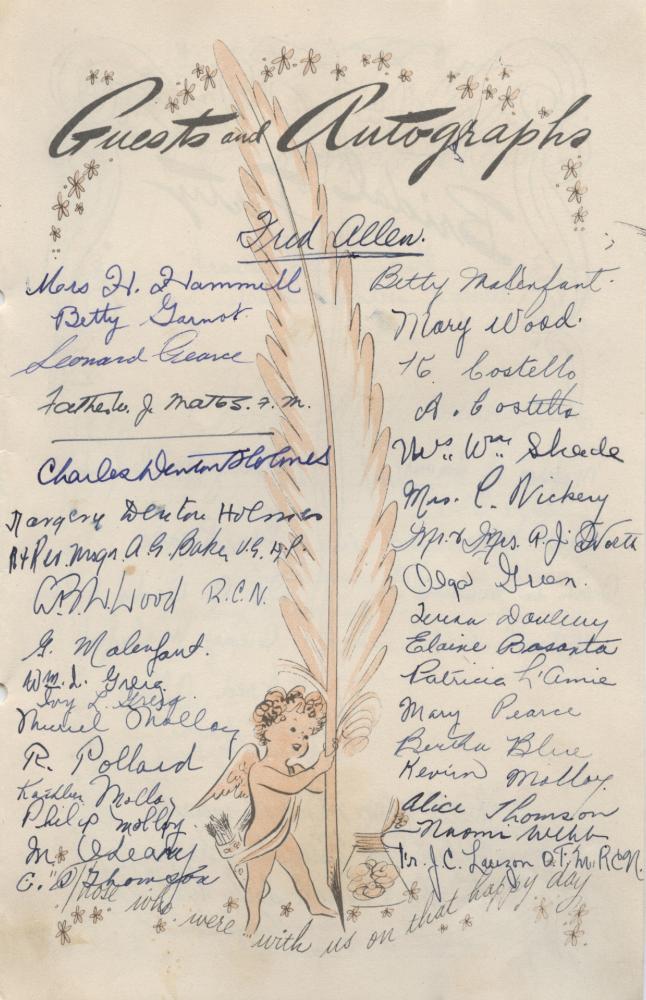 Guests and Autographs
Fred Allen.
Mrs H. Hammill
Betty Garnot
Leonard Pearce
Father J. Matos. F. M.
Charles Denton Holmes
Margery Denton Holmes
Rt Rev. Msgr. A. G. Baker V.G. D.P.
Wood R.C.N.
G. Malenfant.
Wm. L. Greig
Ivy L. Greig
Muriel Molloy
R. Pollard
Kathleen Molloy
Philip Molloy
M. O'Leary
C. D. Thomson
Betty Malenfant.
Mary Wood.
K Costello
A. Costello
Mrs. Wm. Skade
Mrs. C. Vickery
Mr & Mrs. A. J. North
Olga Green.
Elaine Basanta
Patricia L'Amie
Mary Pearce
Bertha Blue
Kevin Molloy.
Alice Thomson
Naomi Webb
Fr. J.C. Lauzon O.F.M. R.C.N.
Those who were with us on that happy day